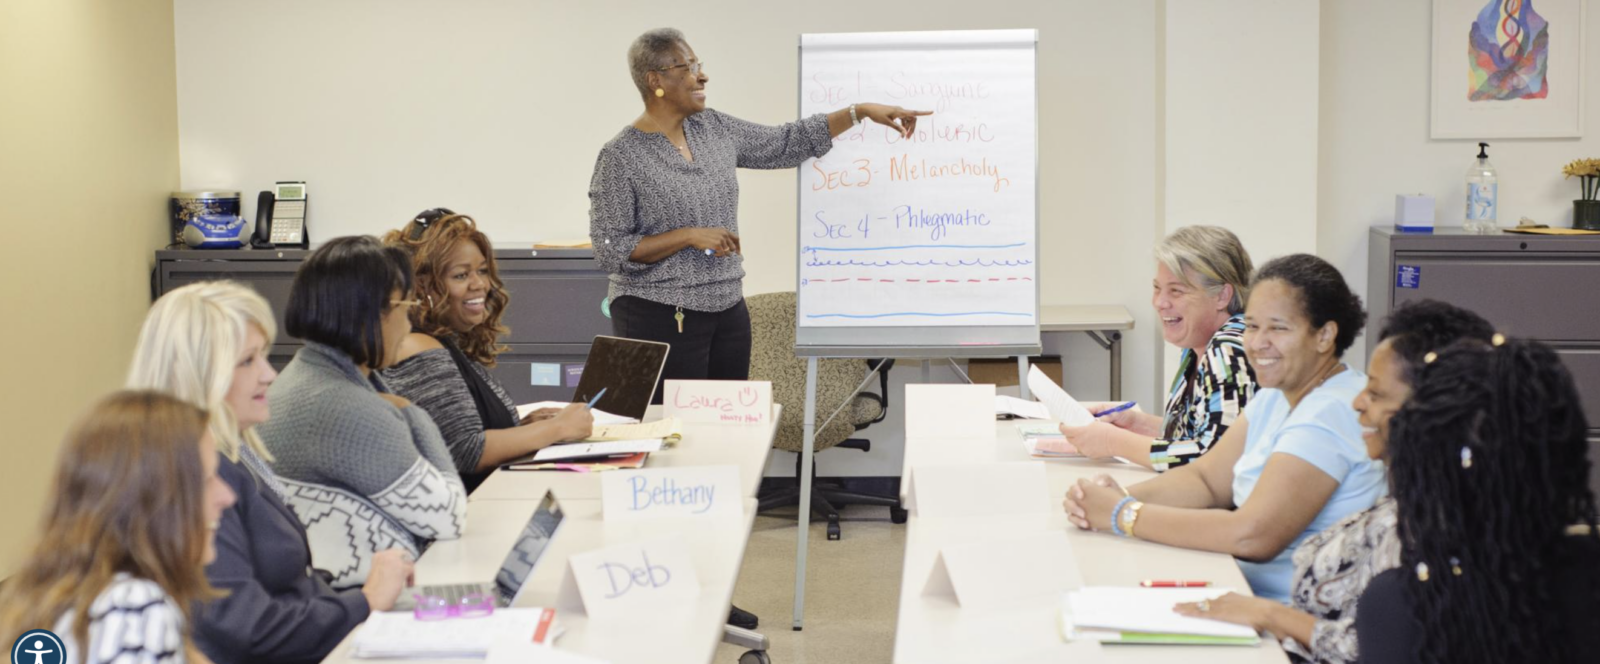 SEC 1 - Sanguine
CholERic
SEC 3 - Melancholy
SEC 4 - Phlegmatic
Laura
Bethany
Deb